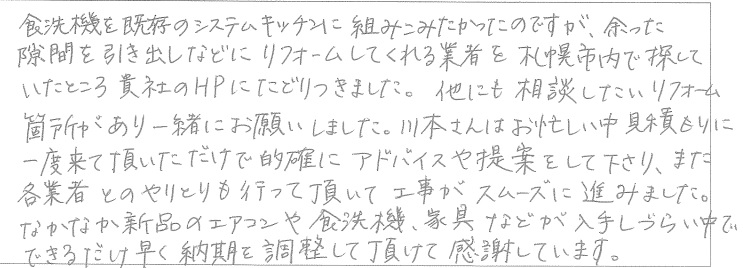 食洗機を既存のシステムキッチンに組みこみたかったのですが、余った
隙間を引き出しなどにリフォームしてくれる業者を札幌市内で探して
いたところ貴社のHPにたどりつきました。他にも相談したいリフォーム
箇所があり一緒にお願いしました。川本さんはお忙しい中見積もりに
一度来て頂いただけで的確にアドバイスや提案をして下さり、また
各業者とのやりとりも行って頂いて工事がスムーズに進みました。
なかなか新品のエアコンや食洗機、家具などが入手しづらい中で
できるだけ早く納期を調整して頂けて感謝しています。